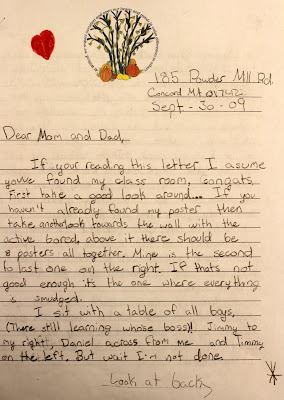 185 Powder Mill Rd.
Concord MA 01742
Sept-30-09
Dear Mom and Dad,
If your reading this letter I asume
youve found my class room, congats,
First take a good look around... If you
haven't already found my poster then
take another look towards the wall with the
active bored, above it there should be
8 posters all together. Mine is the second
to last one on the right. If thats not
good enough its the one where everything
is smudged.
I sit with a table of all boys,
(There still learning whose boss)! Jimmy to
my right, Daniel across from me and Timmy
on the left. But wait I'm not done.
Look at back